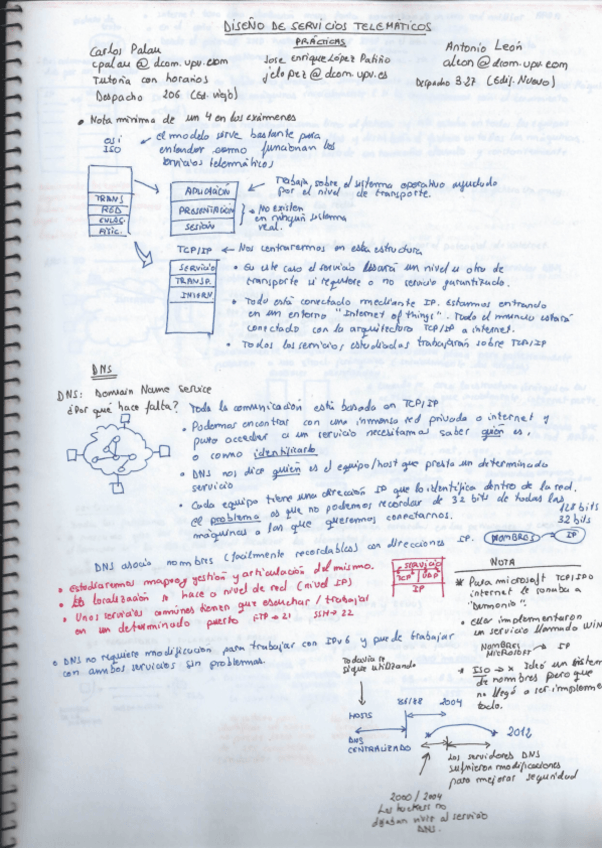 DISEÑO DE SERVICIOS TELEMÁTICOS
PRÁCTICAS
Carlos Palau
cpalau @ dcom.upv.com
Tutoria con horarios
Despacho 206 (Ed. viejo)
Jose enrique López Patiño
jelopez @ dcom.upv.es
Antonio León
aleon @ dcom.upv.com
Despacho 3.27 (Edif. Nuevo)
• Nota minima de un 4 en los exámenes
OSI
ISO
← el modelo sirve bastante para
entender como funcionan los
servicios telemáticos
TRANS
RED
ENLAC.
FISIC.
APLICACIÓN
PRESENTACIÓN
SESIÓN
← Trabaja sobre el sistema operativo ayudado
por el nivel de transporte.
No existen
en ningun sistema
real.
TCP/IP ← Nos centraremos en esta estructura
SERVICIO
TRANSP.
INTERN
• En este caso el servicio usará un nivel u otro de
transporte si requiere o no servicio garantizado.
• Todo está conectado mediante IP. Estamos entrando
en un entorno "Internet of things". Todo el mundo estará
conectado con la arquitectura TCP/IP a internet.
• Todos los servicios estudiados trabajarán sobre TCP/IP
DNS
DNS: Domain Name Service
¿Por qué hace falta? Toda la comunicación está basada en TCP/IP
• Podemos encontrar con una inmensa red privada o internet y
para acceder a un servicio necesitamos saber quién es,
o como identificarlo
• DNS nos dice quién es el equipo/host que presta un determinado
servicio
• Cada equipo tiene una dirección IP que lo identifica dentro de la red.
el problema es que no podemos recordar de 32 bits de todas las
máquinas a las que queremos conectarnos.
128 bits
32 bits
DNS asocia nombres (facilmente recordables) con direcciones IP.
NOMBRES → IP
• Estudiaremos mapeo, gestión y articulación del mismo.
• La localización se hace a nivel de red (nivel IP)
• Unos servicios comunes tienen que escuchar / trabajar
en un determinado puerto FTP → 21 SSH → 22
SERVICIO
TCP / UDP
IP
NOTA
* Para microsoft TCP/IP o
internet le sonaba a
"Demonio".
• Ellos implementaron
un servicio llamado WIN
NOMBRES MICROSOFT → IP
• ISO → x Ideó un sistem
de nombres pero que
no llegó a ser impleme
tado.
• DNS no requiere modificación para trabajar con IPv6 y puede trabajar
con ambos servicios sin problemas.
Todavía se
sigue utilizando
HOSTS
DNS
CENTRALIZADO
2004
2012
Los servidores DNS
sufrieron modificaciones
para mejorar seguridad
2000 / 2004
Los hackers no
dejaban vivir al servicio
DNS.